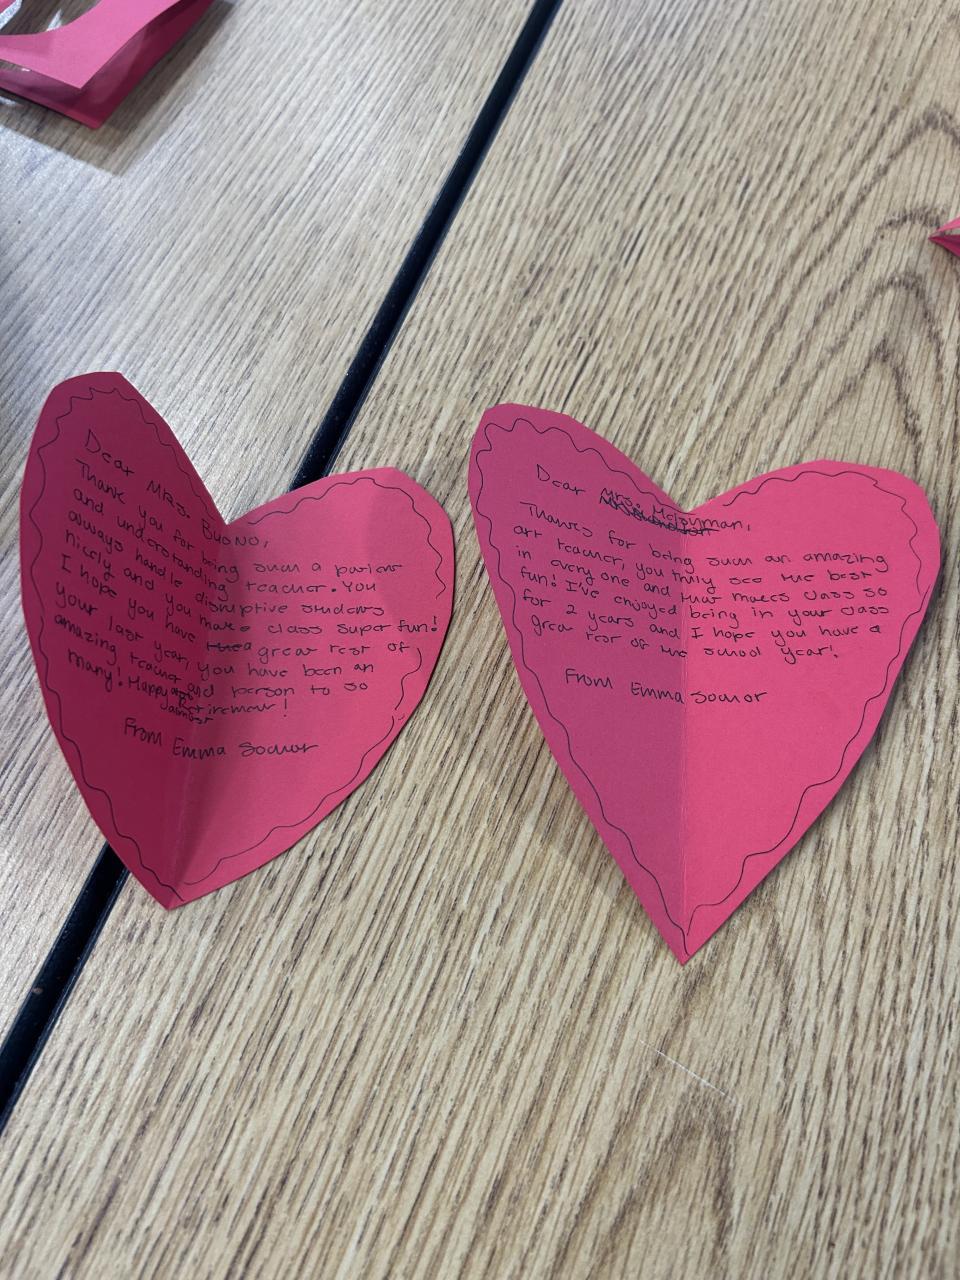 Dear Mrs. Buono,
Thank you for being such a patient
and understanding teacher. You
always handle disruptive students
nicely and you make class super fun!
I hope you have a great rest of
your last year, you have been an
amazing teacher and person to so
many! Happy Retirement!
From Emma
Dear Mrs. McJoyman,
Thanks for being such an amazing
art teacher, you truly see the best
in everyone and that makes class so
fun! I've enjoyed being in your class
for 2 years and I hope you have a
great rest of the school year!
From Emma